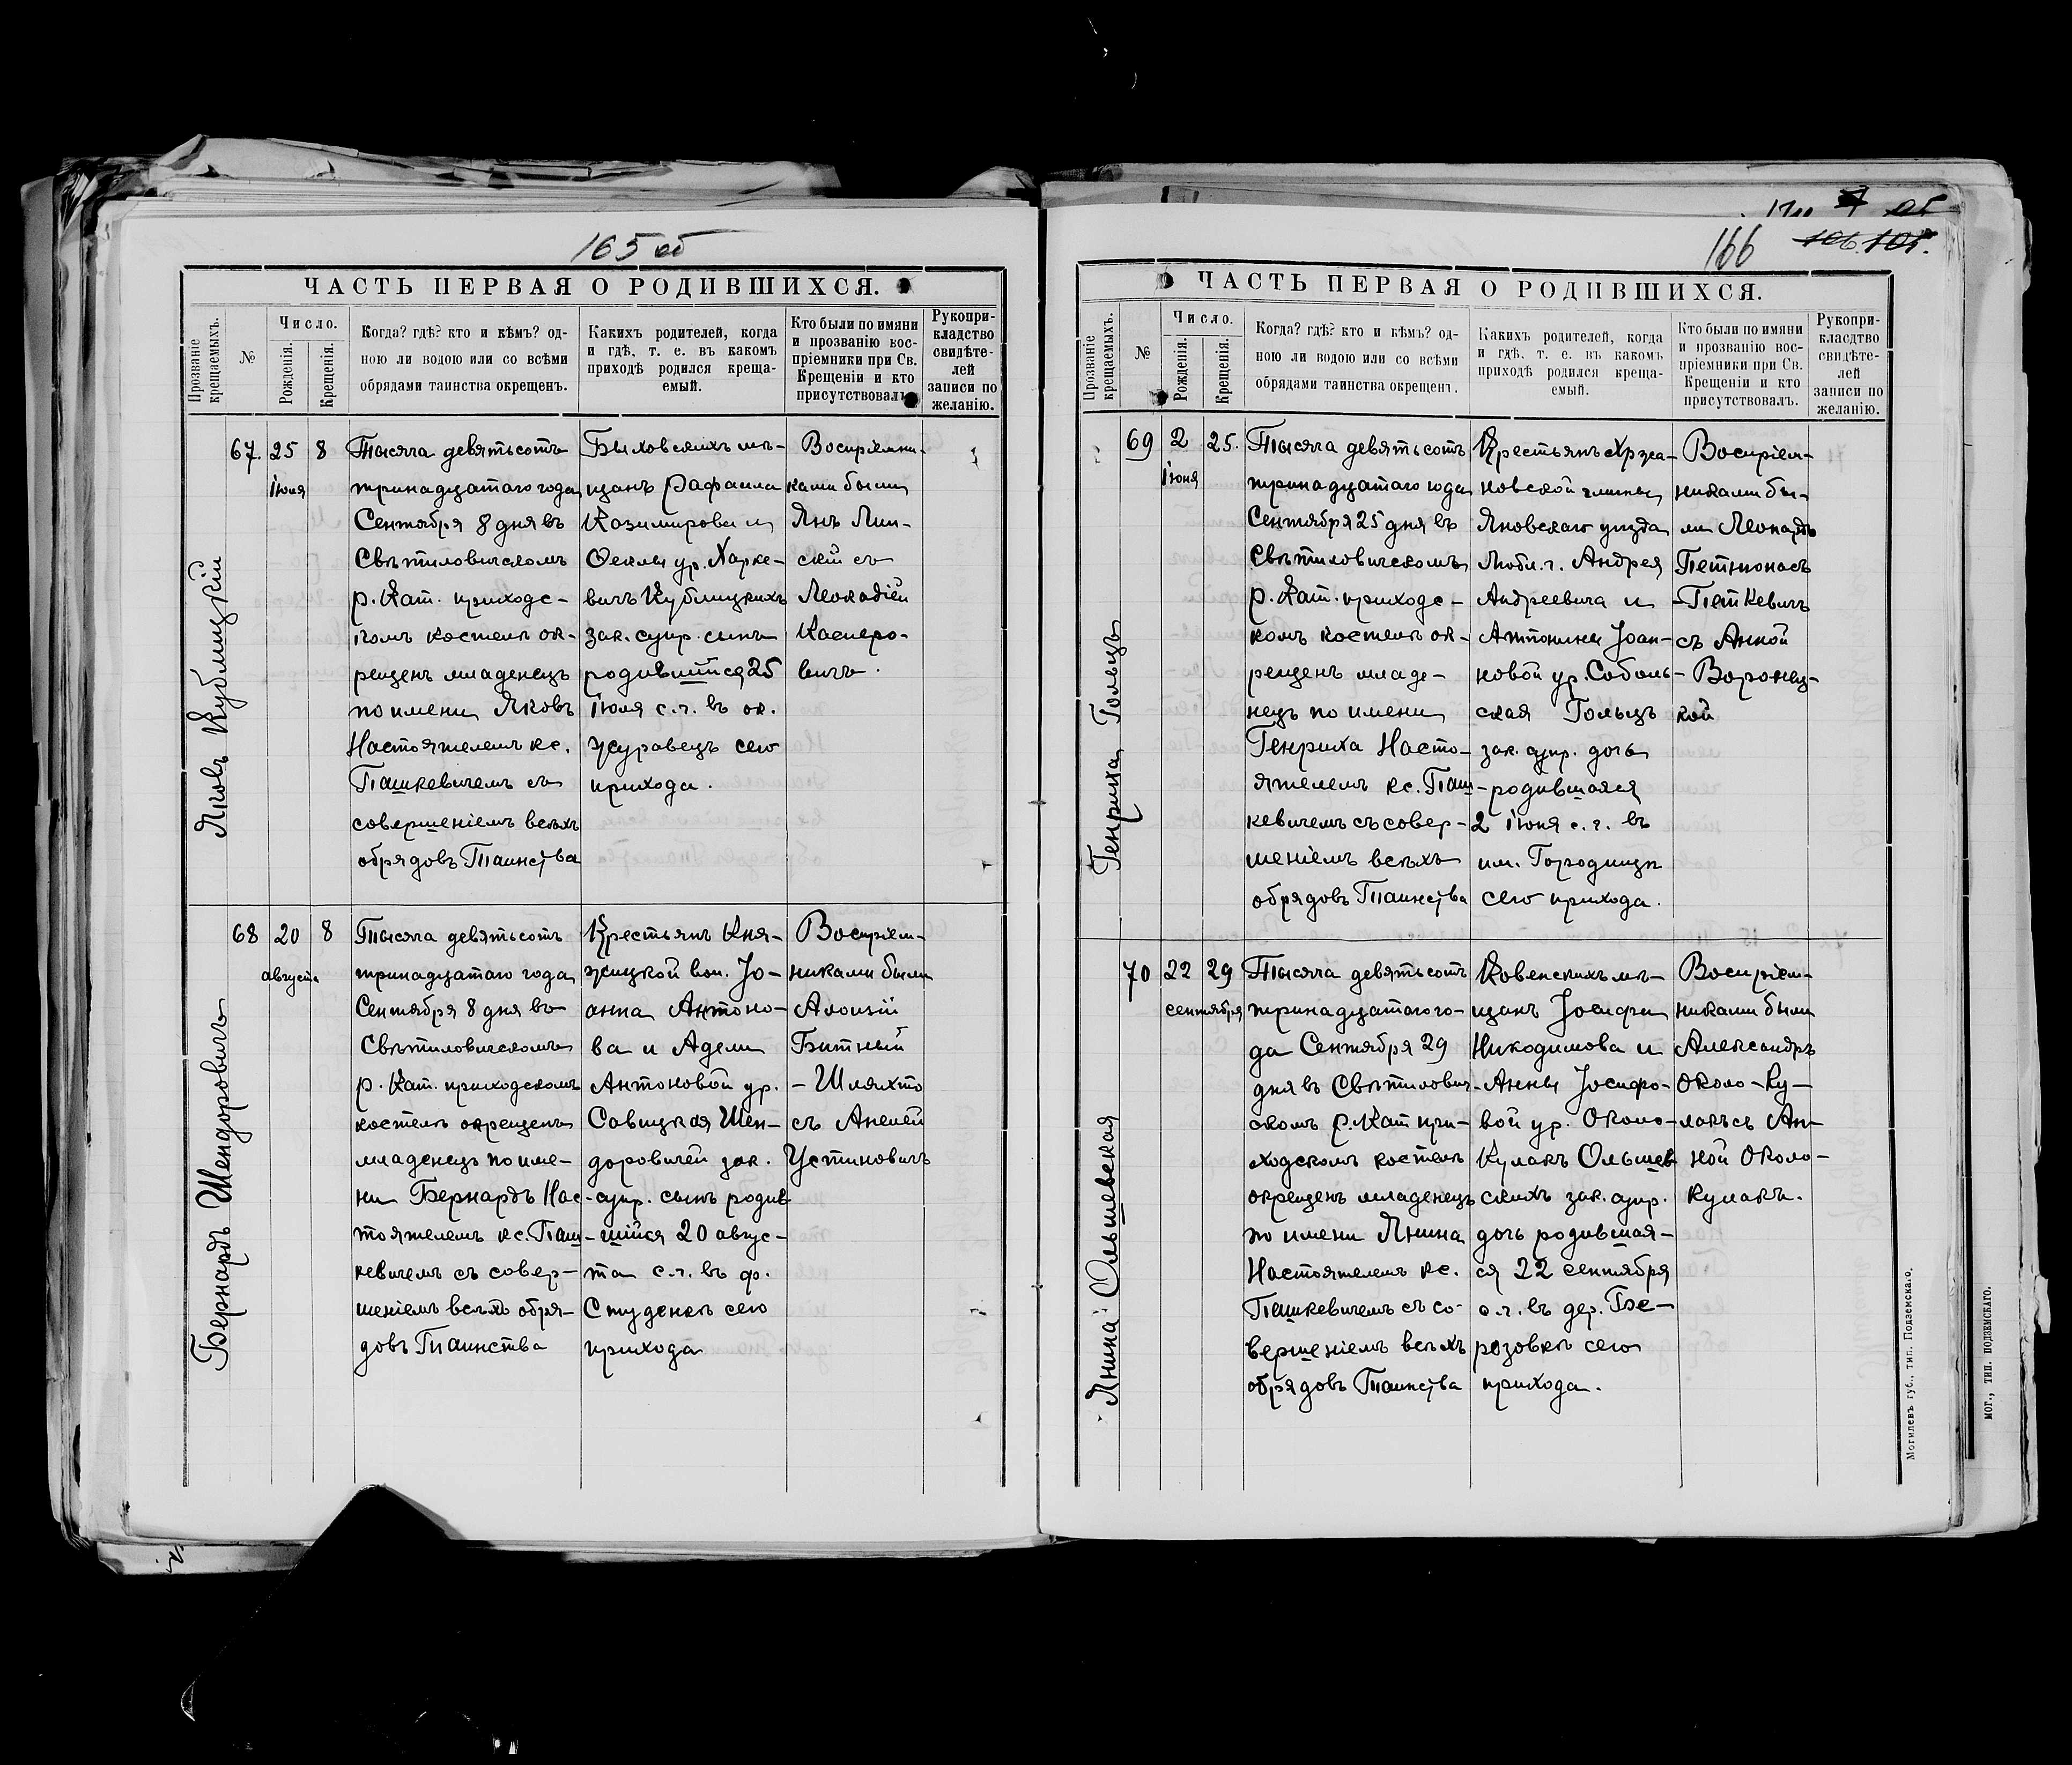 165 об
ЧАСТЬ ПЕРВАЯ О РОДИВШИХСЯ.
Прозваніе крещаемыхъ.
№
Число.
Рожденія.
Крещенія.
Когда? гдѣ? кто и кѣмъ? од-
ною ли водою или со всѣми
обрядами таинства окрещенъ.
Какихъ родителей, когда
и гдѣ, т. е. въ какомъ
приходѣ родился креща-
емый.
Кто были по имяни
и прозванію вос-
пріемники при Св.
Крещеніи и кто
присутствовалъ.
Рукопри-
кладство
свидѣте-
лей
записи по
желанію.
Яковъ Кублицкій
67.
25
Іюля
8
Тысяча девятьсотъ
тринадцатаго года
Сентября 8 дня въ
Свѣтиловичскомъ
р. Кат. приходс-
комъ костелѣ ок-
рещенъ младенецъ
по имени Яковъ
Настоятелемъ кс.
Пашкевичемъ съ
совершеніемъ всѣхъ
обрядовъ Таинства
Быховскихъ мѣ-
щанъ Рафаила
Казимирова и
Феклы ур. Харке-
вичъ Кублицкихъ
зак. супр. сынъ
родившійся 25
Іюля с.г. въ ок.
Журавецъ сего
прихода.
Воспріемни-
ками были
Янъ Лип-
скій съ
Леокадіей
Касперо-
вичъ.
Бернардъ Шендоровичъ
68
20
августа
8
Тысяча девятьсотъ
тринадцатаго года
Сентября 8 дня въ
Свѣтиловичскомъ
р. Кат. приходскомъ
костелѣ окрещенъ
младенецъ по име-
ни Бернардъ Нас-
тоятелемъ кс. Паш-
кевичемъ съ совер-
шеніемъ всѣхъ обря-
довъ Таинства
Крестьянъ Кня-
жицкой вол. Іо-
анна Антоно-
ва и Адели
Антоновой ур.
Савицкая Шен-
доровичей зак.
супр. сынъ родив-
шійся 20 авгус-
та с.г. въ ф.
Студенкѣ сего
прихода
Воспріем-
никами были
Алоизій
Битный
-Шляхто
съ Анелей
Устиновичъ
166 106. 105.
ЧАСТЬ ПЕРВАЯ О РОДИВШИХСЯ.
Прозваніе крещаемыхъ.
№
Число.
Рожденія.
Крещенія.
Когда? гдѣ? кто и кѣмъ? од-
ною ли водою или со всѣми
обрядами таинства окрещенъ.
Какихъ родителей, когда
и гдѣ, т. е. въ какомъ
приходѣ родился креща-
емый.
Кто были по имяни
и прозванію вос-
пріемники при Св.
Крещеніи и кто
присутствовалъ.
Рукопри-
кладство
свидѣте-
лей
записи по
желанію.
Генриха Гольцъ
69
2
Іюня
25.
Тысяча девятьсотъ
тринадцатаго года
Сентября 25 дня въ
Свѣтиловичскомъ
р. Кат. приходс-
комъ костелѣ ок-
рещенъ младе-
нецъ по имени
Генриха Насто-
ятелемъ кс. Паш-
кевичемъ съ совер-
шеніемъ всѣхъ
обрядовъ Таинства
Крестьянъ Хржа-
новской гмины
Яновскаго уѣзда
Любл. г. Андрея
Андреевича и
Антонины Іоан-
новой ур. Соболь-
ская Гольцъ
зак. супр. дочь
родившаяся
2 Іюня с.г. въ
им. Городищѣ
сего прихода.
Воспріем-
никами бы-
ли Леонардъ
Петкевичъ
съ Анной
Воронец-
кой
Янина Ольшевская
70
22
сентября
29
Тысяча девятьсотъ
тринадцатаго го-
да Сентября 29
дня въ Свѣтилович-
скомъ р. Кат при-
ходскомъ костелѣ
окрещенъ младенецъ
по имени Янина
Настоятелемъ кс.
Пашкевичемъ съ со-
вершеніемъ всѣхъ
обрядовъ Таинства
Ковенскихъ мѣ-
щанъ Іосифа
Никодимова и
Анны Іосифо-
вой ур. Около-
Кулакъ Ольшев-
скихъ зак. супр.
дочь родившая-
ся 22 сентября
с.г. въ дер. Бе-
резовкѣ сего
прихода.
Воспріем-
никами были
Александръ
Около-Ку-
лакъ съ Ан-
ной Около-
Кулакъ.
Могилевъ губ., тип. Подземскаго.
МОГ., ТИП. ПОДЗЕМСКАГО.